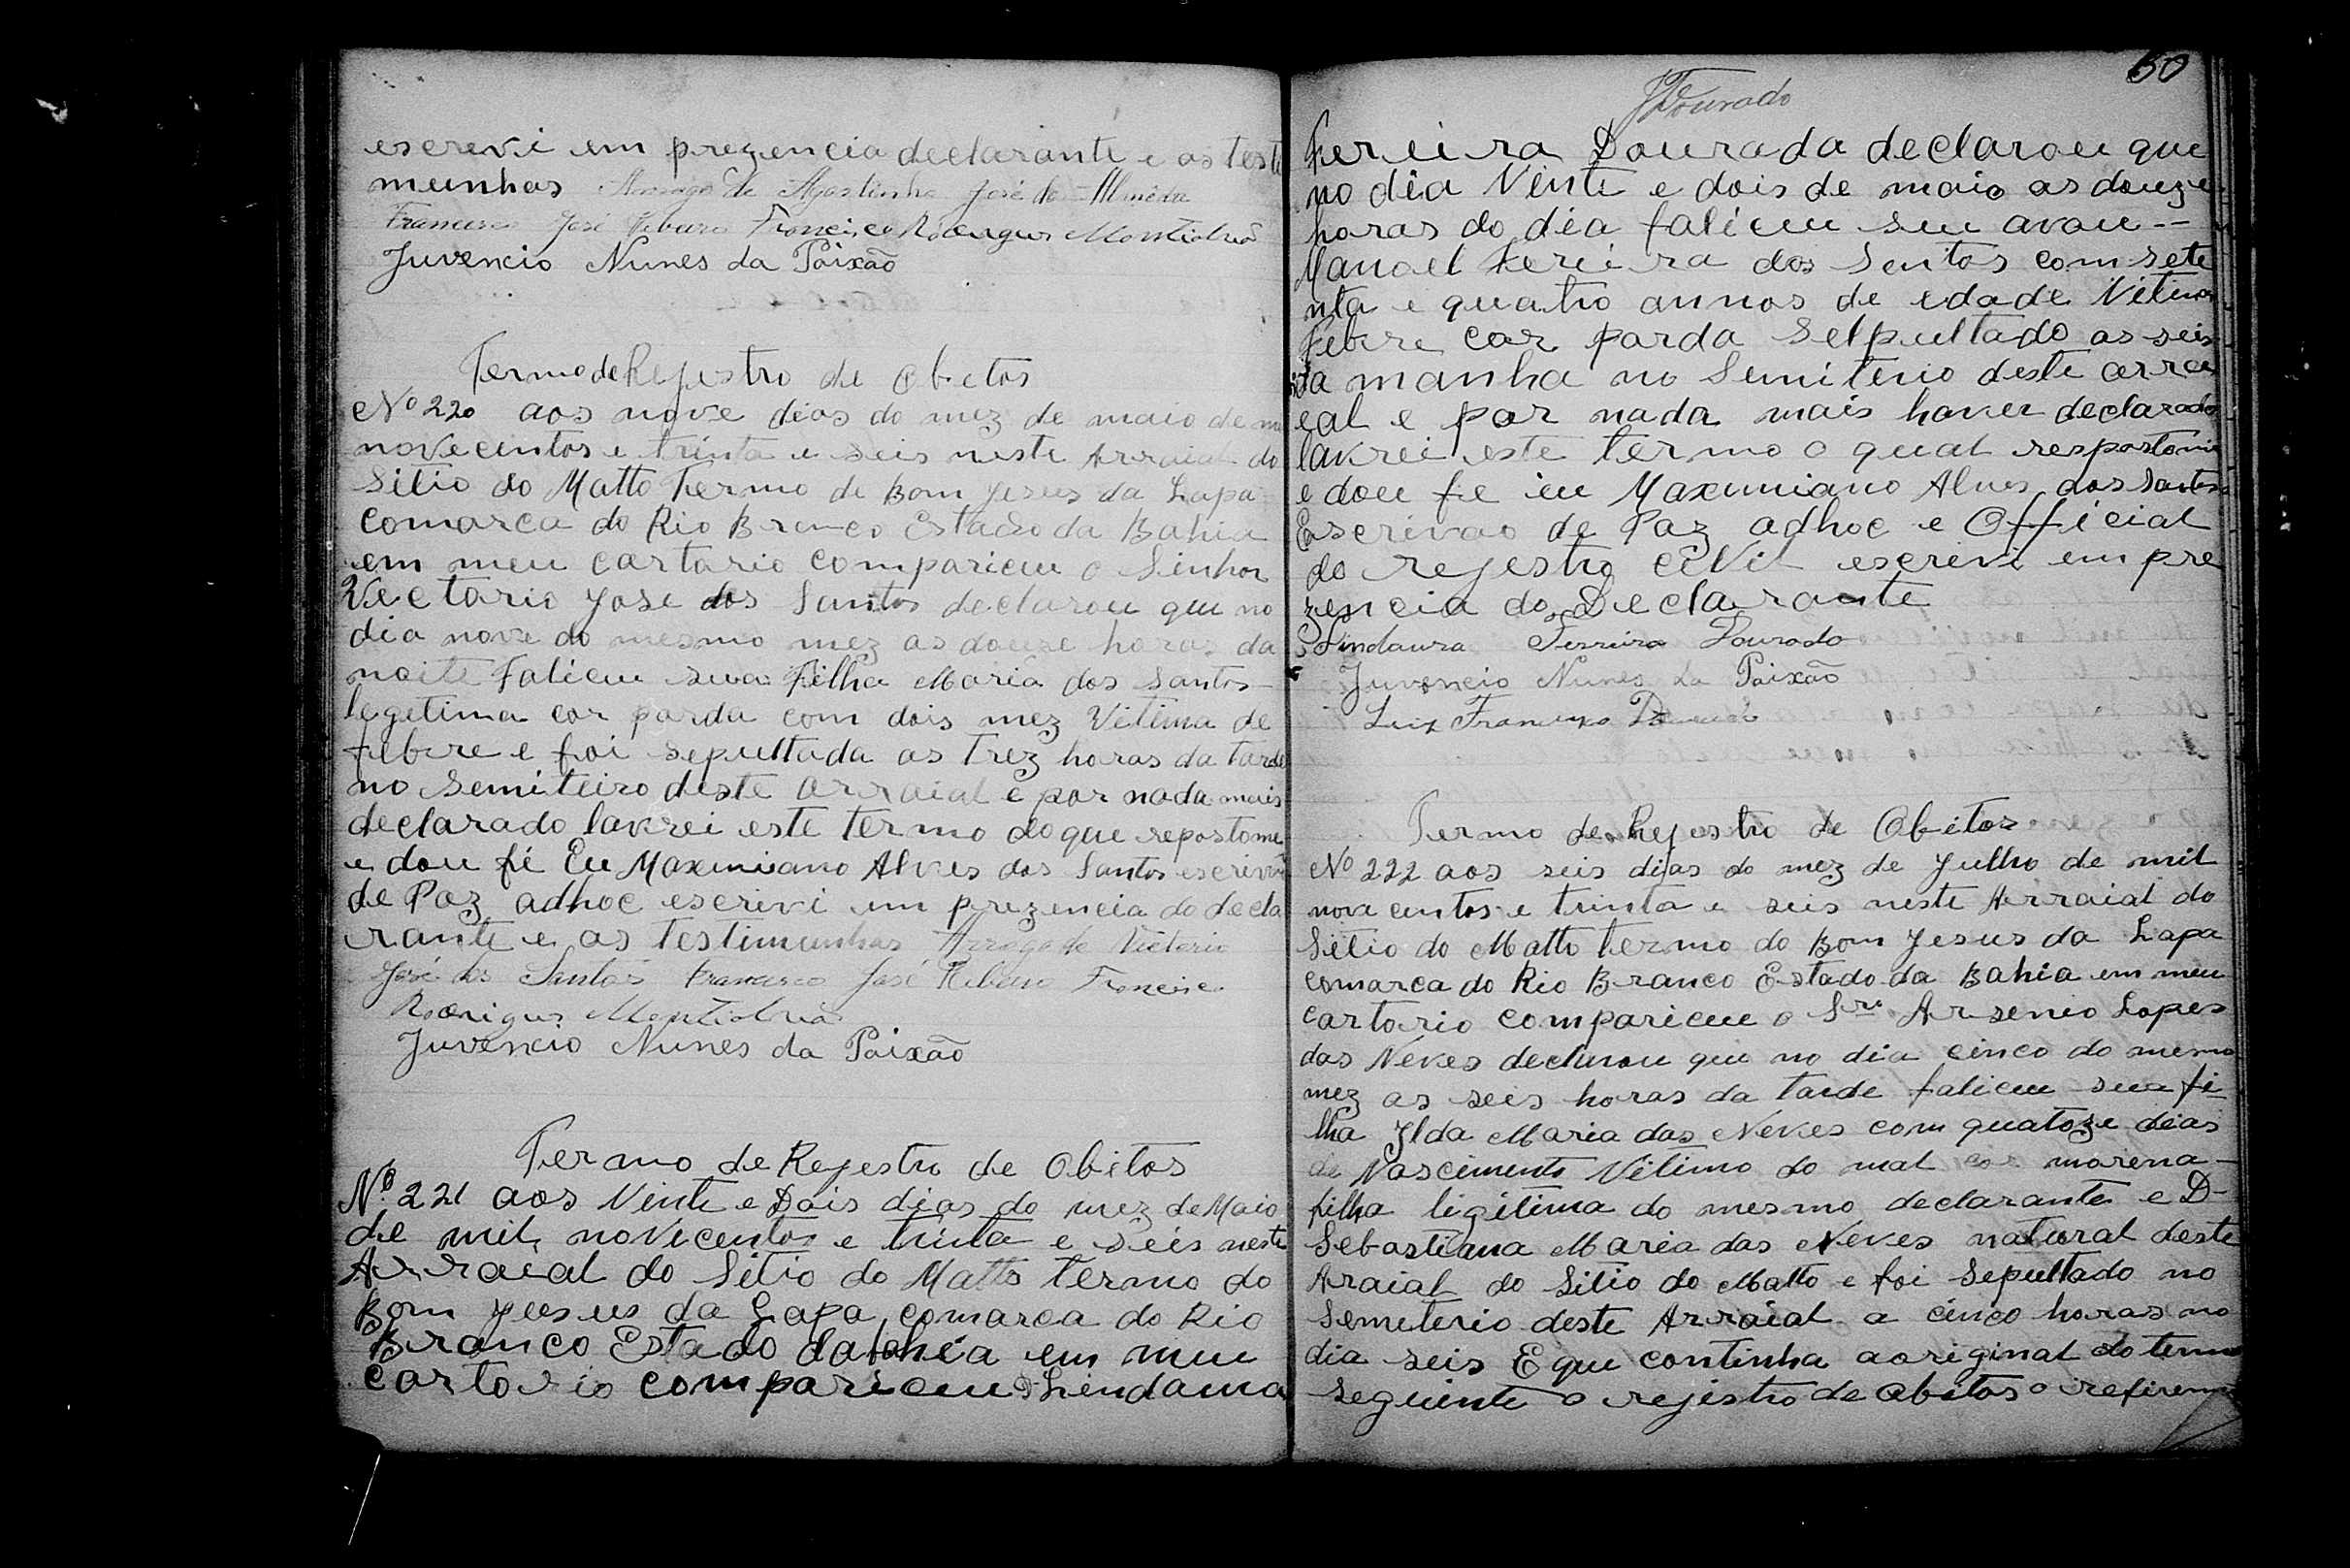 escrevi em prezencia declarante e as teste
munhas Arrogo de Agostinho José de Almeida
Francisco José Ribeiro Francisco Rodrigues
Juvencio Nunes da Paixão
Termo de Rejestro de Obetos
Nº 220 aos nove dias do mez de maio de m
novecentos e trinta e seis neste Arraial do
Sitio do Matto termo de Bom Jesus da Lapa
Comarca do Rio Branco Estado da Bahia
em meu cartorio compariceu o Sinhor
Victorio Jose dos Santos declarou que no
dia nove do mesmo mez as douze horas da
noite Faliceu sua Filha Maria dos Santos
legetima cor parda com dois mez Vitima de
febre e foi sepultada as trez horas da tarde
no semiteiro deste arraial e por nada mais
declarado lavrei este termo do que repostome
e dou fé Eu Maxemiano Alves dos Santos escrivão
de Paz adhoc escrivi em prezencia do decla
rante e as testimunhas Arrogo de Victorio
José dos Santos Francisco José Ribeiro Francisco
Rodrigues
Juvencio Nunes da Paixão
Termo de Rejestro de Obitos
Nº 221 aos Vinte e Dois dias do mez de Maio
de mil novicentos e trinta e seis neste
Arraial do Sitio do Matto termo do
Bom Jesus da Lapa comarca do Rio
Branco Estado da bahia em meu
cartorio compariceu D. Lindaura
60
JDourado
Fereira Dourada declarou que
no dia Vinte e dois de maio as douze
horas do dia faliceu seu avou --
Manoel Fereira dos Santos com sete
nta e quatro annos de edade Vitima
Febre cor parda Selpultado as seis
da manha no Semiterio deste arra
eal e por nada mais haver declarado
lavrei este termo o qual respostomi
e dou fe eu Maxemiano Alves dos Santos
Escrivao de Paz adhoc e Official
do rejestro civil escrivi em pre
zencia do Declarante
Lindaura Ferreira Dourado
Juvencio Nunes da Paixão
Luiz Francisco Dourado
Termo de Rejestro de Obitos
Nº 222 aos seis dias do mez de Julho de mil
nove centos e trinta e seis neste Arraial do
Sitio do Matto termo do Bom Jesus da Lapa
comarca do Rio Branco Estado da Bahia em meu
cartorio compariceu o Snr. Arsenio Lopes
das Neves declarou que no dia cinco do mesmo
mez as seis horas da tarde faliceu sua fi
lha Ylda Maria das Neves com quatoze dias
de Nascimento Vitimo do mal cor morena
filha ligitima do mesmo declarante e D-
Sebastiana Maria das Neves natural deste
Araial do Sitio do Matto e foi Sepultado no
Semiterio deste Arraial a cinco horas no
dia seis E que continha aoriginal do termo
seguinte o rejistro de obitos o